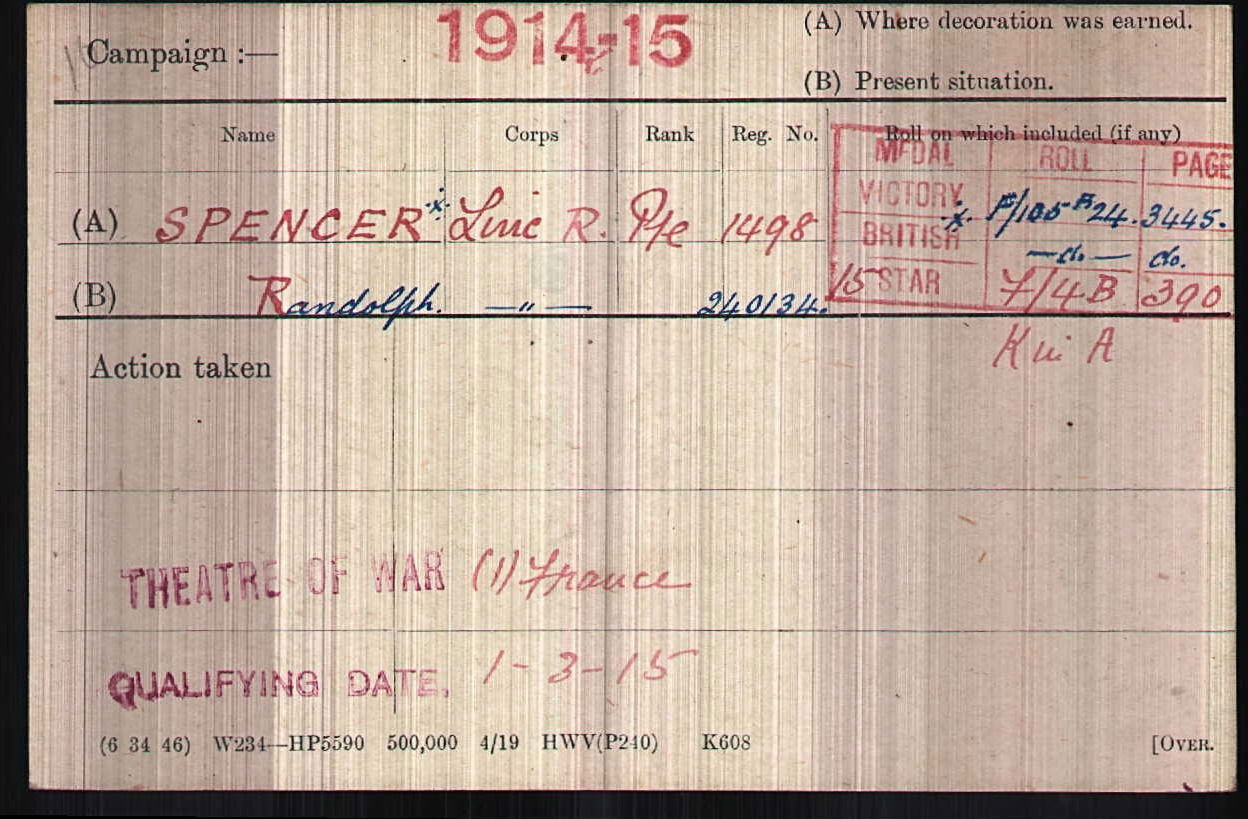 Campaign :— 1914-15 (A) Where decoration was earned.
(B) Present situation.
Name Corps Rank Reg. No. Roll on which included (if any)
MEDAL ROLL PAGE
(A) SPENCER * Linc R. Pte 1498 VICTORY * F/105 B24. 3445.
BRITISH —do— do.
(B) Randolph. —"— 240134. 15 STAR F/4B 390
K in A
Action taken
THEATRE OF WAR (1) France
QUALIFYING DATE. 1-3-15
(6 34 46) W234—HP5590 500,000 4/19 HWV(P240) K608 [OVER.